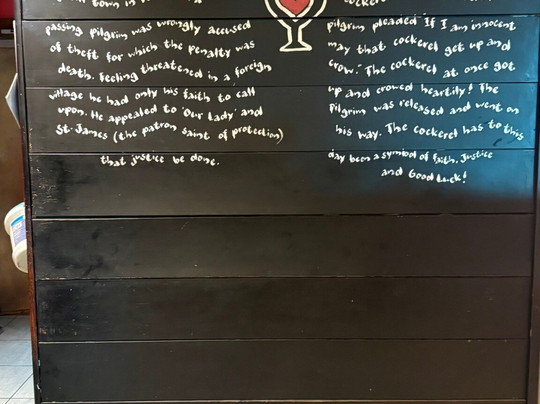 passing pilgrim was wrongly accused
of theft for which the penalty was
death. Feeling threatened in a foreign
village he had only his faith to call
upon. He appealed to 'Our Lady' and
St. James (the patron saint of protection)
that justice be done.
cockerel
pilgrim pleaded 'If I am innocent
may that cockerel get up and
crow.' The cockerel at once got
up and crowed heartily! The
pilgrim was released and went on
his way. The cockerel has to this
day been a symbol of faith, justice
and Good Luck!